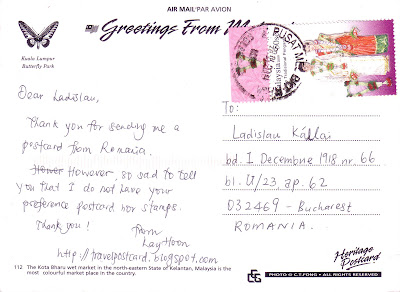 AIR MAIL/PAR AVION
Greetings From
Kuala Lumpur
Butterfly Park
PUSAT MEL
Malaysia
Dear Ladislau,
Thank you for sending me a
postcard from Romania.
However, so sad to tell
you that I do not have your
preference postcard nor stamps.
Thank you!
from
LayHoon
http://travelpostcard.blogspot.com
To:
Ladislau Kállai
bd. I Decembrie 1918 nr. 66
bl. U/23, ap. 62
032469 - Bucharest
ROMANIA.
Heritage
Postcard
112 The Kota Bharu wet market in the north-eastern State of Kelantan, Malaysia is the
most colourful market place in the country.
PHOTO © C.T.FONG • ALL RIGHTS RESERVED